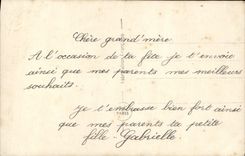 Chère grand'mère
A l'occasion de ta fête je t'envoie
ainsi que mes parents mes meilleurs
souhaits.
je t'embrasse bien fort ainsi
que mes parents ta petite
PARIS
fille - Gabrielle.